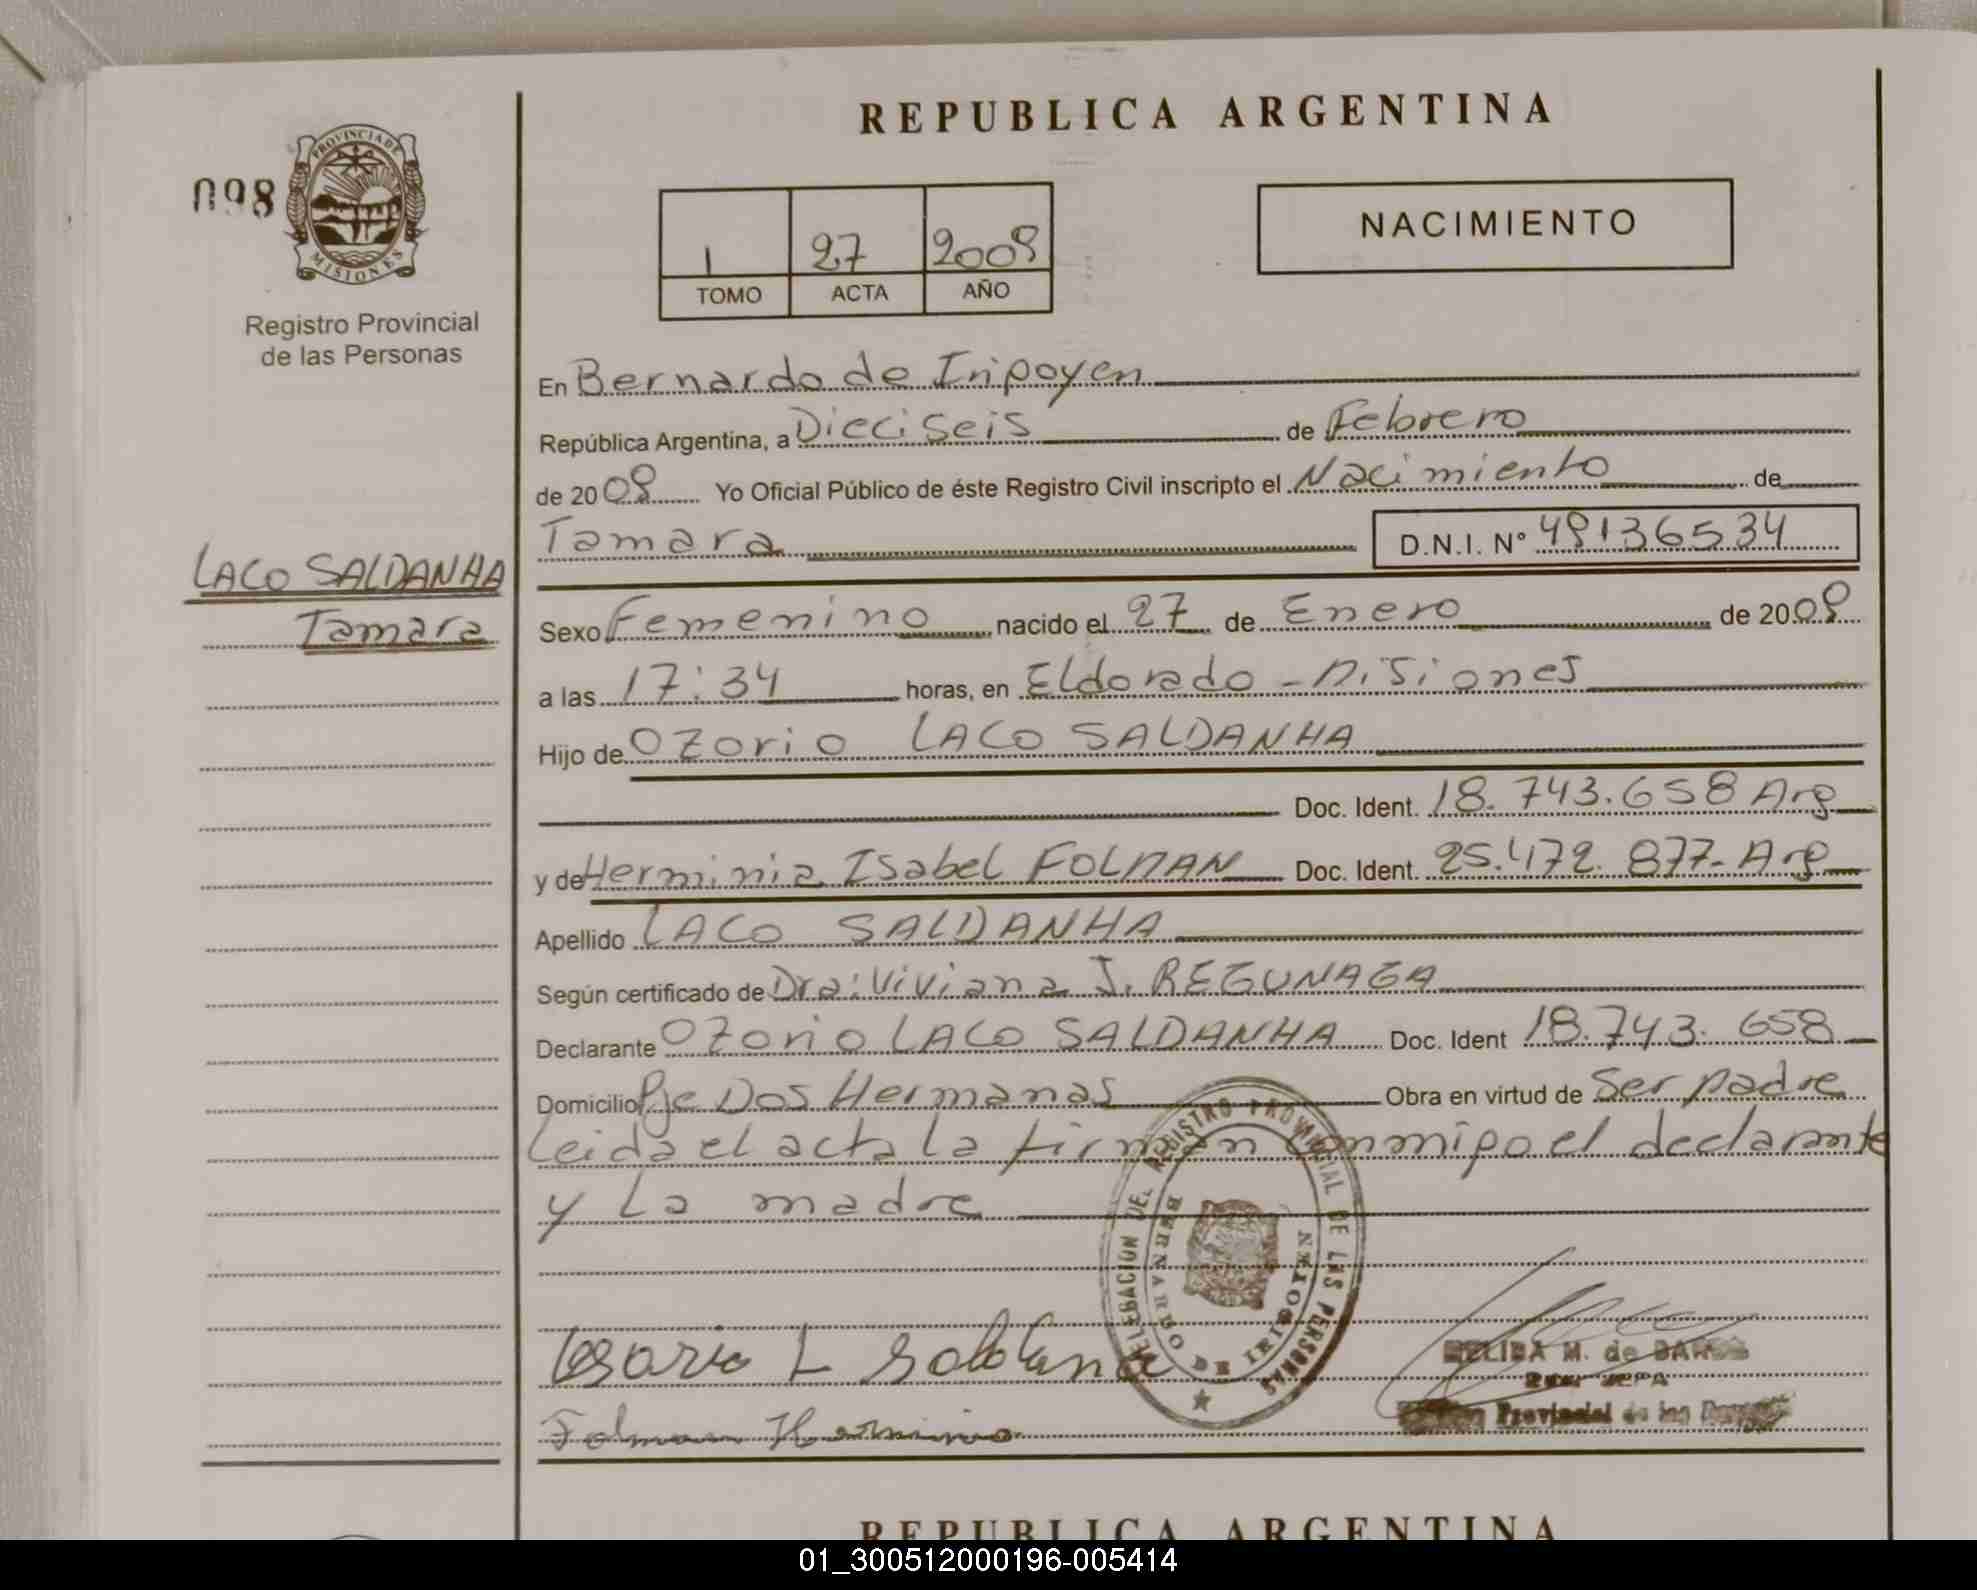 REPUBLICA ARGENTINA
098
PROVINCIA DE
MISIONES
Registro Provincial
de las Personas
1 27 2009
TOMO ACTA AÑO
NACIMIENTO
En Bernardo de Iripoyen
República Argentina, a Dieciseis de Febrero
de 2009 Yo Oficial Público de éste Registro Civil inscripto el Nacimiento de
Tamara D.N.I. Nº 49136534
LACO SALDANHA
Tamara
Sexo Femenino nacido el 27 de Enero de 2009
a las 17:34 horas, en Eldorado - Misiones
Hijo de Ozorio LACO SALDANHA
Doc. Ident. 18.743.658 Arg
y de Herminia Isabel FOLMAN Doc. Ident. 25.472.877- Arg
Apellido LACO SALDANHA
Según certificado de Dra: Viviana J. REGUNAGA
Declarante Ozorio LACO SALDANHA Doc. Ident 18.743.658
Domicilio Pje Dos Hermanas Obra en virtud de Ser padre
Leida el acta la firman conmigo el declarante
y La madre
DELEGACION DEL REGISTRO PROVINCIAL DE LAS PERSONAS
BERNARDO DE IRIGOYEN
L Soldana
M. de
Provincial de las
Folman Herminia
REPUBLICA ARGENTINA
01_300512000196-005414